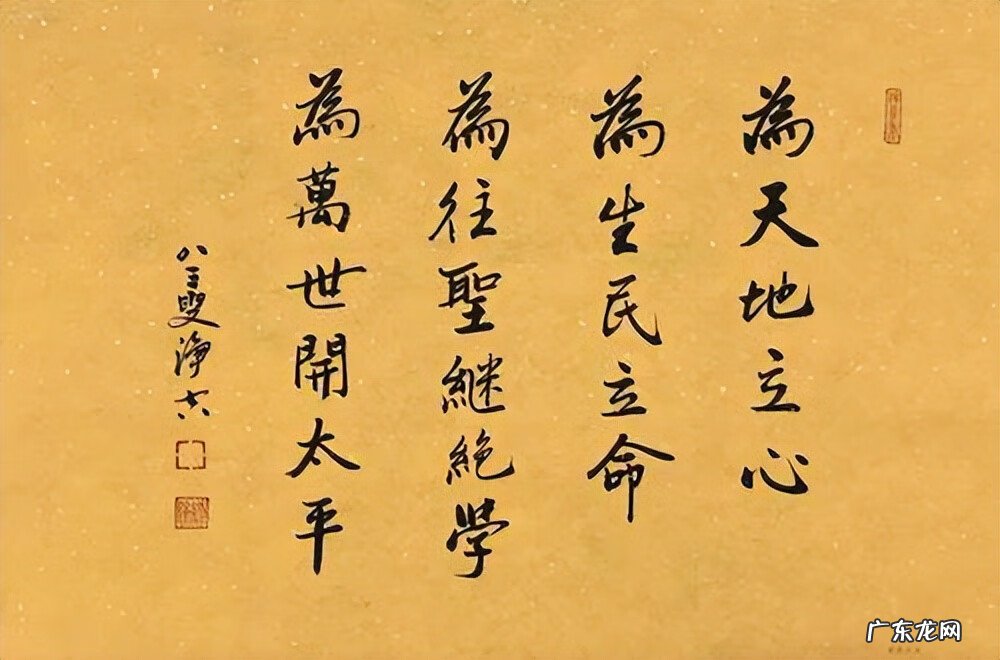 為天地立心
為生民立命
為往聖継絶學
為萬世開太平
八三叟淨空
广东龙网